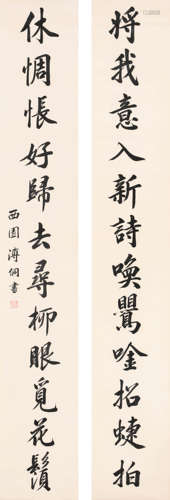 將我意入新詩喚鸎唫招蜨拍
休惆悵好歸去尋柳眼覓花鬚
西園溥侗書